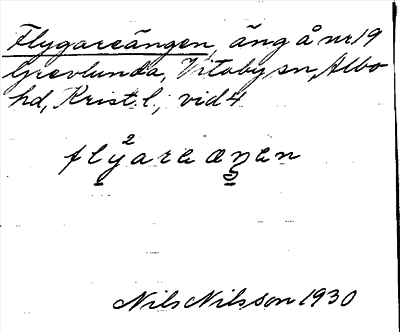 Flygareängen, äng å nr 19
Grevlunda, Vitaby sn, Albo
hd, Krist. l., vid 4
2
flyareæŋen
Nils Nilsson 1930